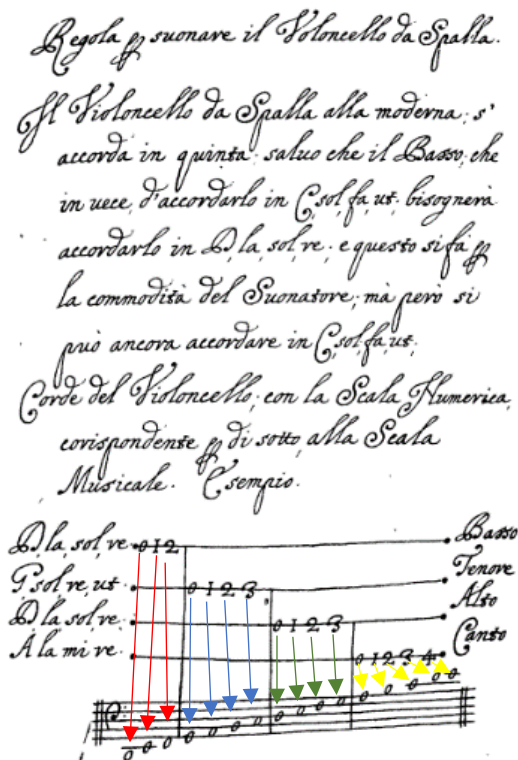 Regola p suonare il Voloncello da Spalla.
Il Violoncello da Spalla alla moderna; s'
accorda in quinta; saluo che il Basso; che
in uece, d'accordarlo in C,sol,fa,ut; bisognerà
accordarlo in D,la,sol,re; e questo si fà p
la commodità del Suonatore; mà però si
può ancora accordare in C,sol,fa,ut;
Corde del Violoncello; con la Scala Numerica,
corispondente p di sotto alla Scala
Musicale. Esempio.
D,la,sol,re 0 1 2 Basso
G,sol,re,ut 0 1 2 3 Tenore
D,la sol,re 0 1 2 3 Alto
A la mi re 0 1 2 3 4 Canto